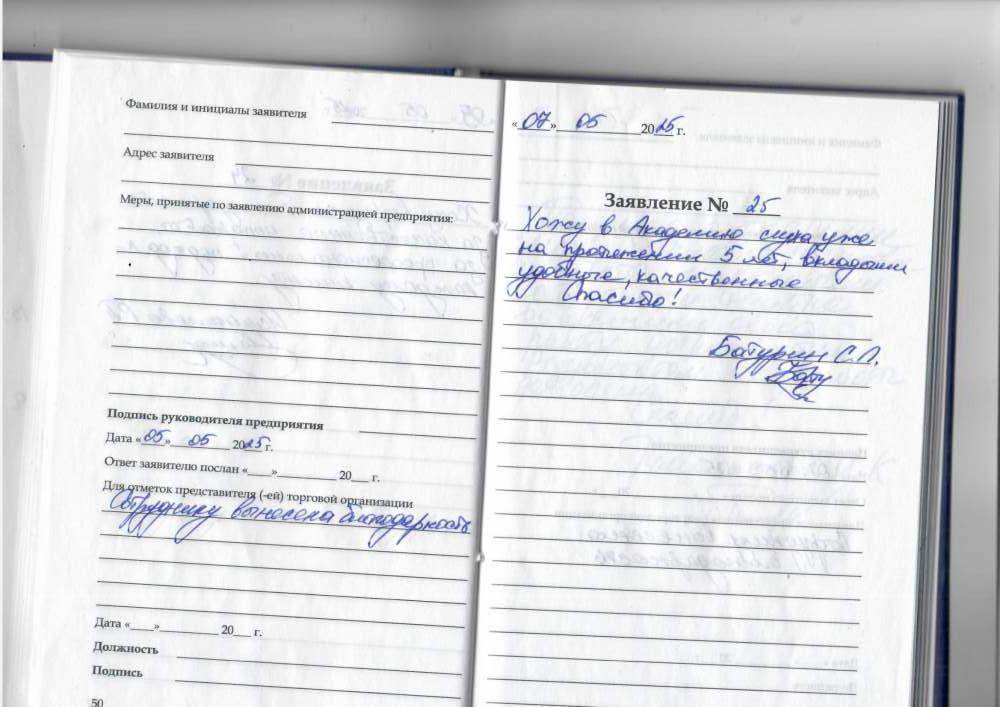 Фамилия и инициалы заявителя
Адрес заявителя
Меры, принятые по заявлению администрацией предприятия:
Подпись руководителя предприятия
Дата «05» 05 2025 г.
Ответ заявителю послан «____»__________ 20___ г.
Для отметок представителя (-ей) торговой организации
Сотруднику вынесена благодарность
Дата «____»__________ 20___ г.
Должность
Подпись
50
«07» 05 2025 г.
Заявление № 25
Хожу в Академию слуха уже
на протяжении 5 лет, вкладыши
удобные, качественные
Спасибо!
Батурин С.П.